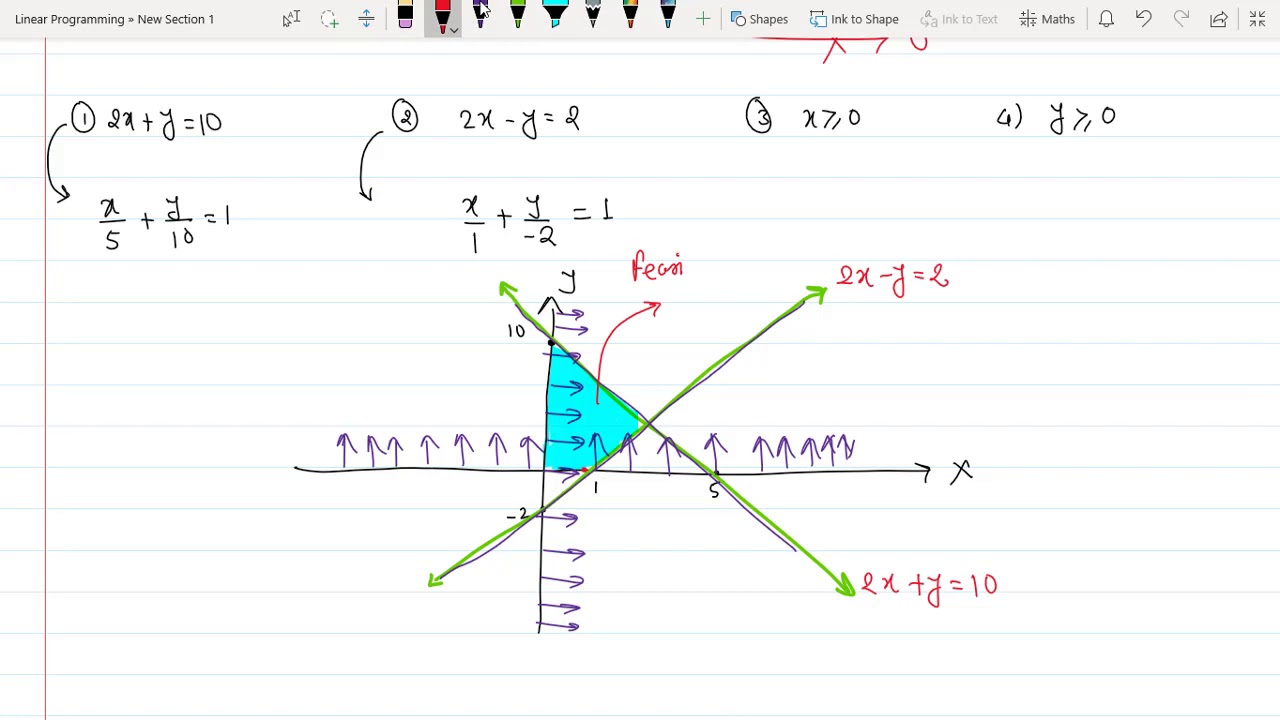 Linear Programming » New Section 1
Shapes
Ink to Shape
Ink to Text
Maths
① 2x + y = 10
② 2x - y = 2
③ x ≥ 0
4) y ≥ 0
x/5 + y/10 = 1
x/1 + y/-2 = 1
Feasi
y
2x - y = 2
10
x
1
5
-2
2x + y = 10